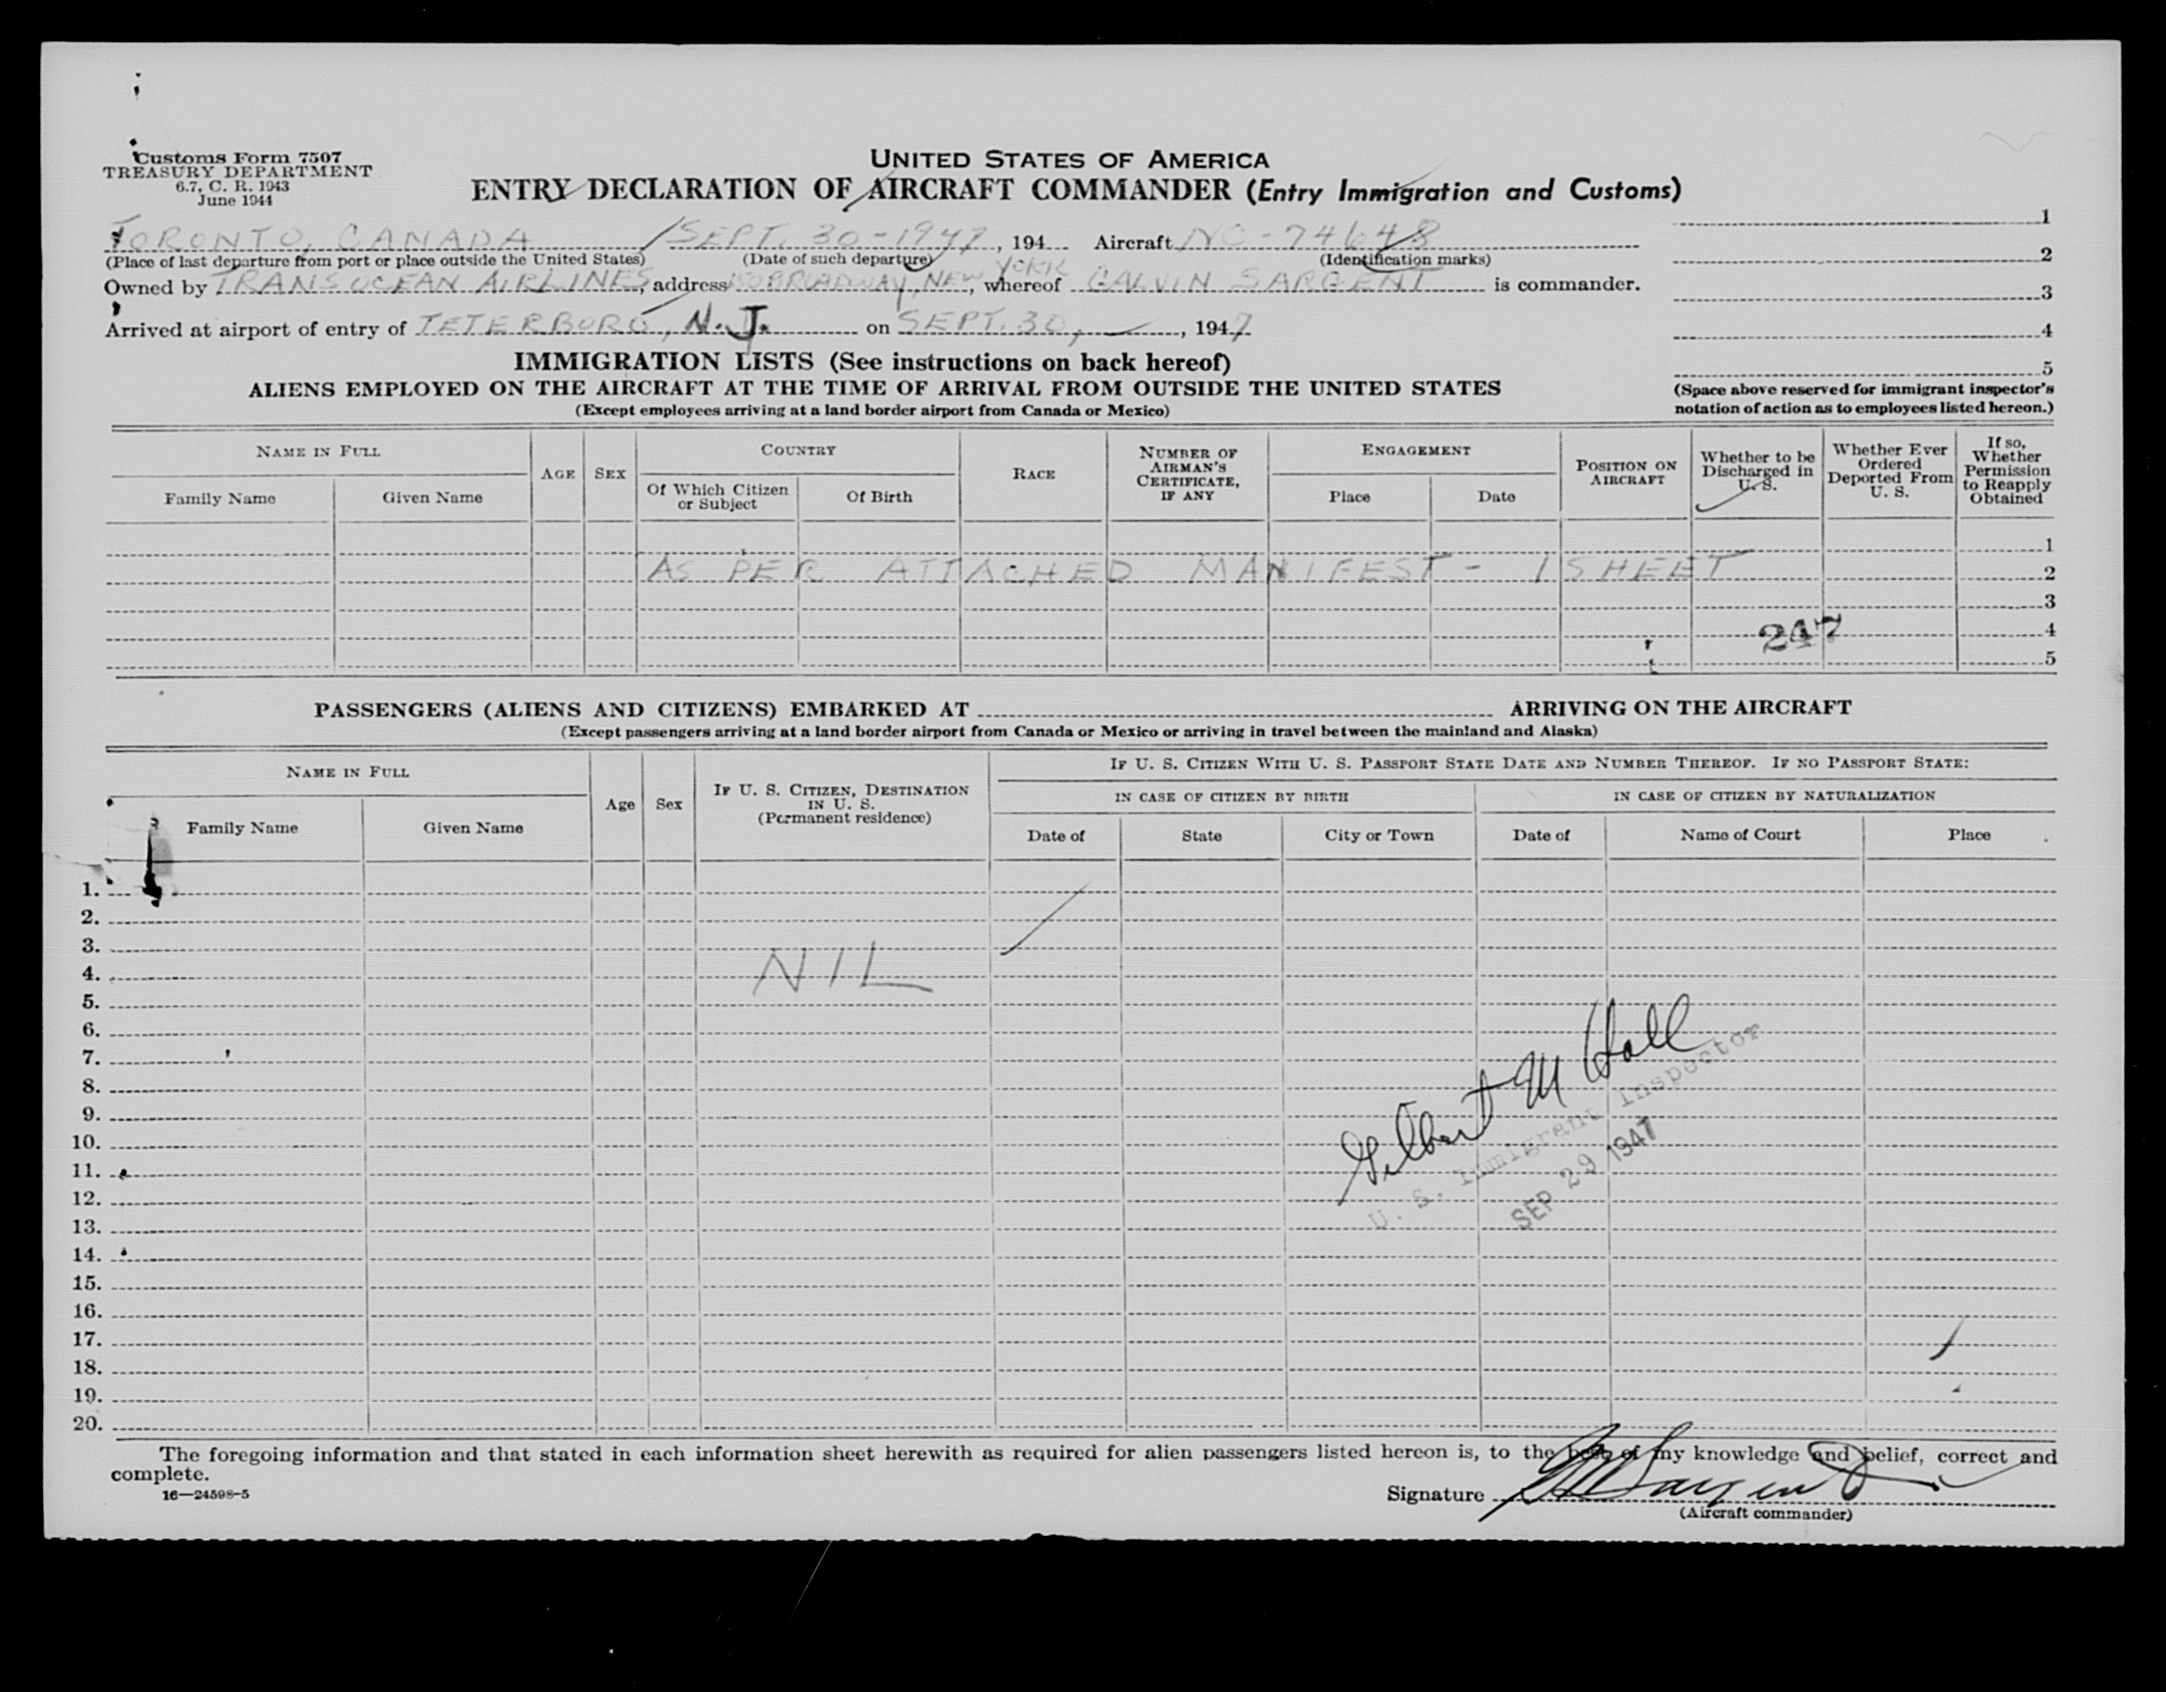 Customs Form 7507
TREASURY DEPARTMENT
6.7, C. R. 1943
June 1944
UNITED STATES OF AMERICA
ENTRY DECLARATION OF AIRCRAFT COMMANDER (Entry Immigration and Customs)
TORONTO, CANADA SEPT. 30-1947, 194 Aircraft NC-74648
(Place of last departure from port or place outside the United States) (Date of such departure) (Identification marks)
Owned by TRANSOCEAN AIRLINES, address BROADWAY, NEW YORK, whereof CALVIN SARGENT is commander.
Arrived at airport of entry of TETERBORO, N.J. on SEPT. 30, 1947
1
2
3
4
5
(Space above reserved for immigrant inspector's
notation of action as to employees listed hereon.)
IMMIGRATION LISTS (See instructions on back hereof)
ALIENS EMPLOYED ON THE AIRCRAFT AT THE TIME OF ARRIVAL FROM OUTSIDE THE UNITED STATES
(Except employees arriving at a land border airport from Canada or Mexico)
NAME IN FULL
Family Name Given Name
AGE
SEX
COUNTRY
Of Which Citizen or Subject
Of Birth
RACE
NUMBER OF AIRMAN'S CERTIFICATE, IF ANY
ENGAGEMENT
Place Date
POSITION ON AIRCRAFT
Whether to be Discharged in U. S.
Whether Ever Ordered Deported From U. S.
If so, Whether Permission to Reapply Obtained
1
AS PER ATTACHED MANIFEST - 1 SHEET 2
3
247 4
5
PASSENGERS (ALIENS AND CITIZENS) EMBARKED AT ARRIVING ON THE AIRCRAFT
(Except passengers arriving at a land border airport from Canada or Mexico or arriving in travel between the mainland and Alaska)
NAME IN FULL
Family Name Given Name
Age
Sex
IF U. S. CITIZEN, DESTINATION IN U. S.
(Permanent residence)
IF U. S. CITIZEN WITH U. S. PASSPORT STATE DATE AND NUMBER THEREOF. IF NO PASSPORT STATE:
IN CASE OF CITIZEN BY BIRTH
IN CASE OF CITIZEN BY NATURALIZATION
Date of State City or Town Date of Name of Court Place
1.
2.
3.
4. NIL
5.
6.
7.
8.
9.
10.
11.
12.
13.
14.
15.
16.
17.
18.
19.
20.
Gilbert M Hall
U. S. Immigrant Inspector
SEP 29 1947
The foregoing information and that stated in each information sheet herewith as required for alien passengers listed hereon is, to the best of my knowledge and belief, correct and
complete.
16—24598-5
Signature Sargent
(Aircraft commander)